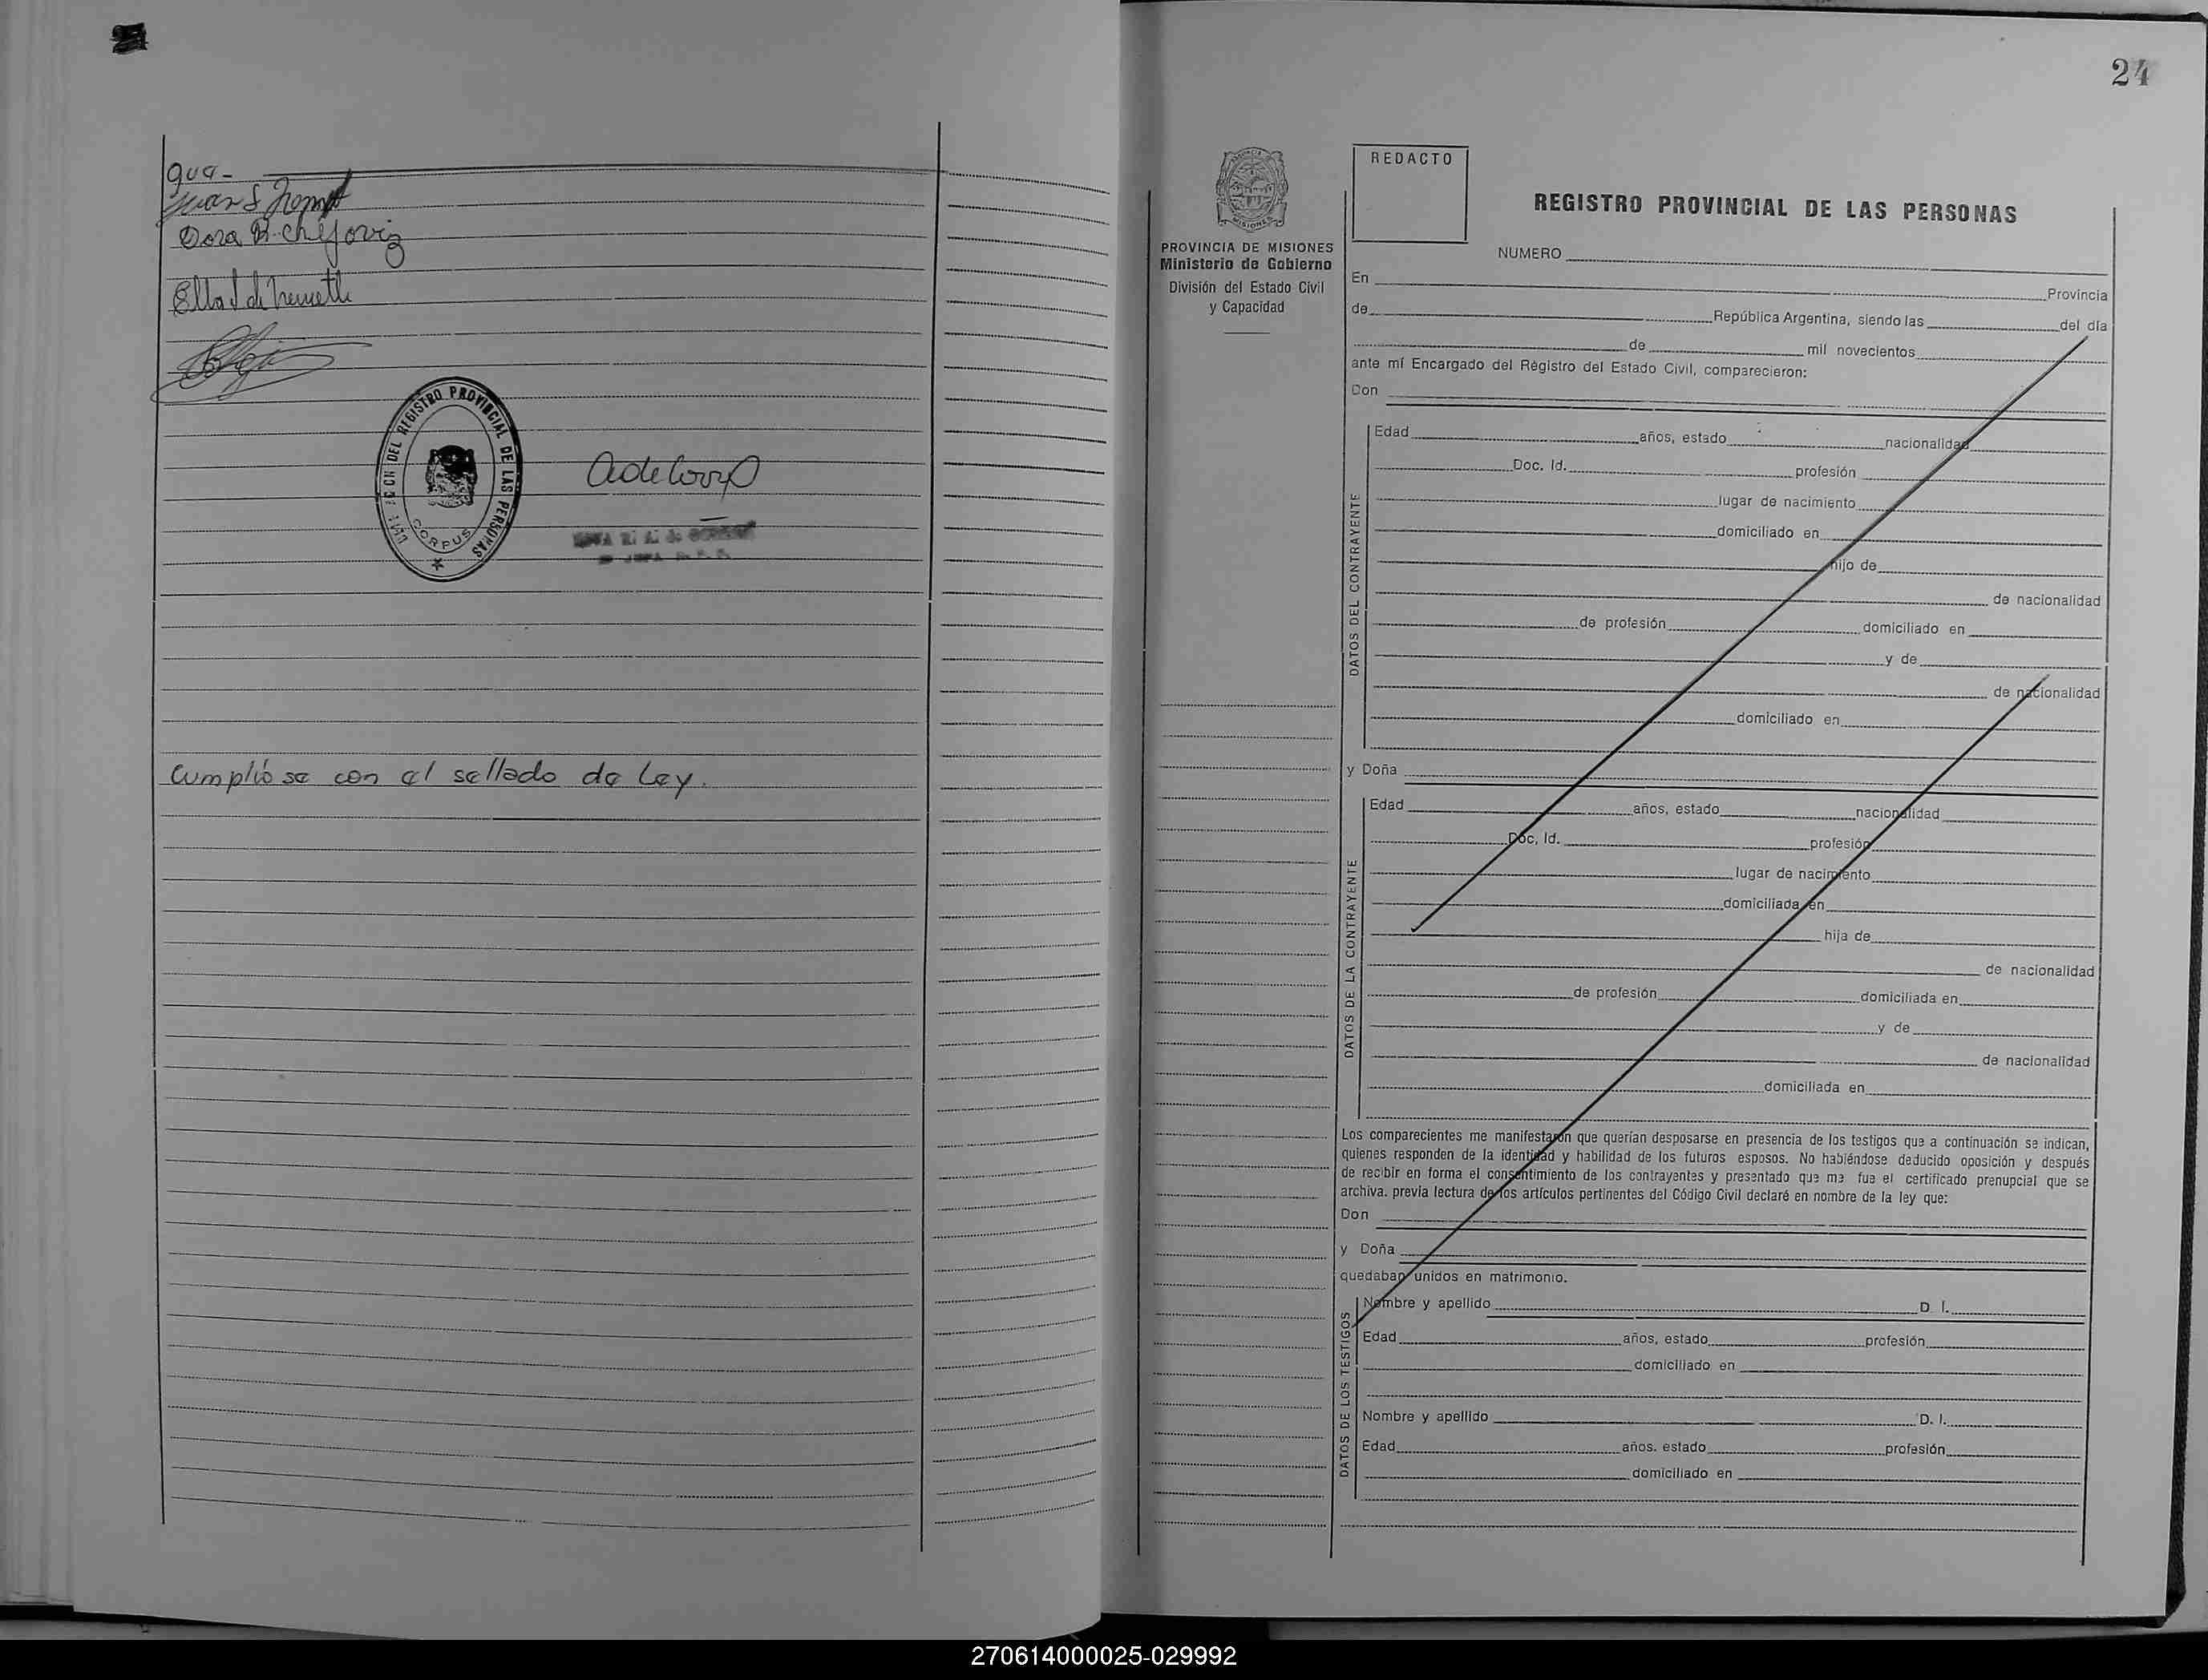 gua-
Juan S
Dora R. Chejoviz
Ella S de Nemeth
DEL REGISTRO PROVINCIAL DE LAS PERSONAS
CORPUS
Cumplióse con el sellado de Ley.
24
REDACTO
REGISTRO PROVINCIAL DE LAS PERSONAS
PROVINCIA DE MISIONES
Ministerio de Gobierno
División del Estado Civil
y Capacidad
NUMERO
En
Provincia
de República Argentina, siendo las del día
de mil novecientos
ante mí Encargado del Registro del Estado Civil, comparecieron:
Don
DATOS DEL CONTRAYENTE
Edad años, estado nacionalidad
Doc. Id. profesión
lugar de nacimiento
domiciliado en
hijo de
de nacionalidad
de profesión domiciliado en
y de
de nacionalidad
domiciliado en
y Doña
DATOS DE LA CONTRAYENTE
Edad años, estado nacionalidad
Doc. Id. profesión
lugar de nacimiento
domiciliada en
hija de
de nacionalidad
de profesión domiciliada en
y de
de nacionalidad
domiciliada en
Los comparecientes me manifestaron que querían desposarse en presencia de los testigos que a continuación se indican,
quienes responden de la identidad y habilidad de los futuros esposos. No habiéndose deducido oposición y después
de recibir en forma el consentimiento de los contrayentes y presentado que me fue el certificado prenupcial que se
archiva. previa lectura de los artículos pertinentes del Código Civil declaré en nombre de la ley que:
Don
y Doña
quedaban unidos en matrimonio.
DATOS DE LOS TESTIGOS
Nombre y apellido D. I.
Edad años, estado profesión
domiciliado en
Nombre y apellido D. I.
Edad años. estado profesión
domiciliado en
270614000025-029992